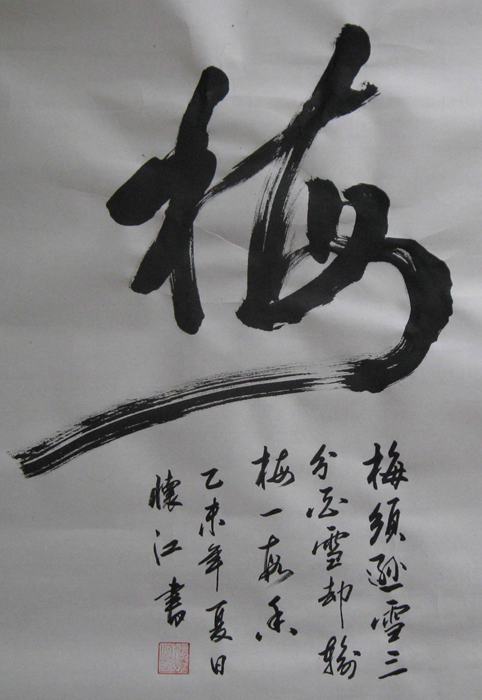 梅
梅須遜雪三
分白雪却輸
梅一段香
乙未年夏日
懷江書